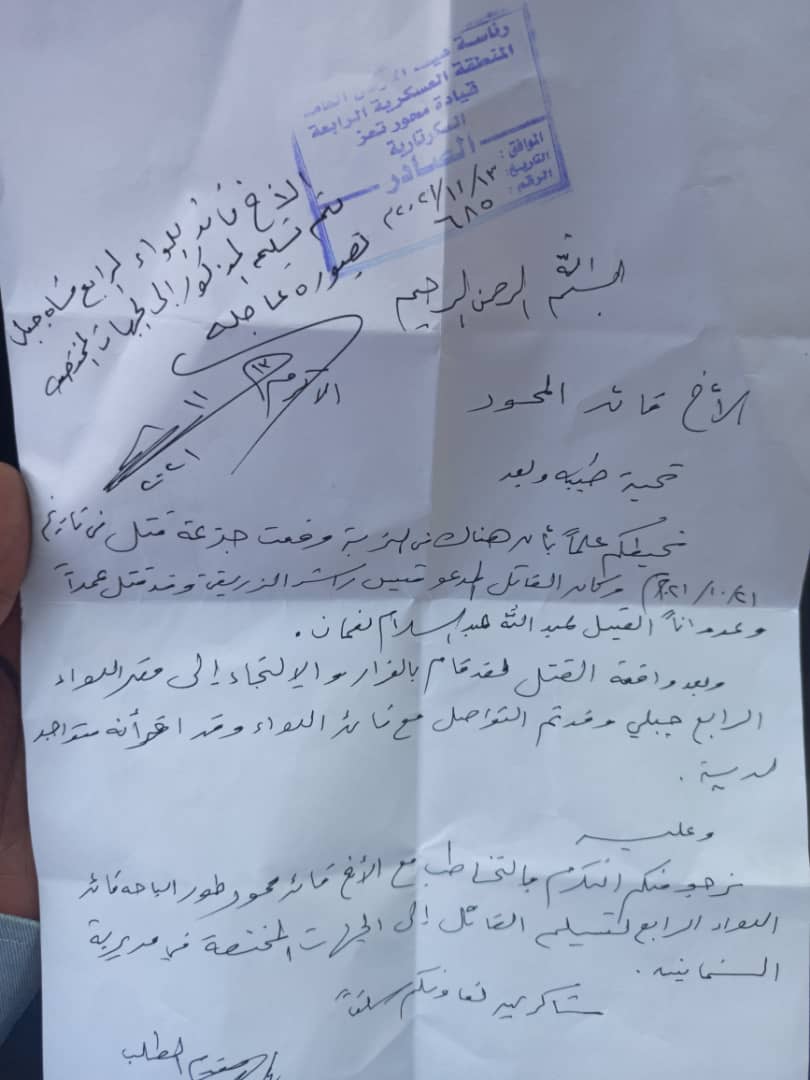 رئاسة هيئة الأركان العامة
المنطقة العسكرية الرابعة
قيادة محور تعز
السكرتارية
الصادر
الموافق:
التاريخ: ٢٠٢١/١١/١٣م
الرقم: ٦٨٥
الأخ قائد اللواء الرابع مشاه جبلي
يتم تسليم المذكور إلى الجهات المختصة
بصوره عاجله
١٣
١١
بسم الله الرحمن الرحيم
الأخ قائد المحور
تحية طيبه وبعد
نحيطكم علماً بأن هناك في التربة وقعت جريمة قتل في تاريخ
٢٠٢١/١٠/٢١م وكان القاتل المدعو قيس راشد الزريقي وقد قتل عمداً
وعدواناً القتيل عبد الله عبد السلام نعمان.
وبعد واقعة القتل فقد قام بالفرار والإلتجاء إلى مقر اللواء
الرابع جبلي وقد تم التواصل مع قائد اللواء وقد اقر أنه متواجد
لديه.
وعليه
نرجو منكم التكرم بالتخاطب مع الأخ قائد محور طور الباحه قائد
اللواء الرابع لتسليم القاتل إلى الجهات المختصة في مديرية
الشمايتين.
شاكرين تعاونكم سلفاً
مقدم الطلب